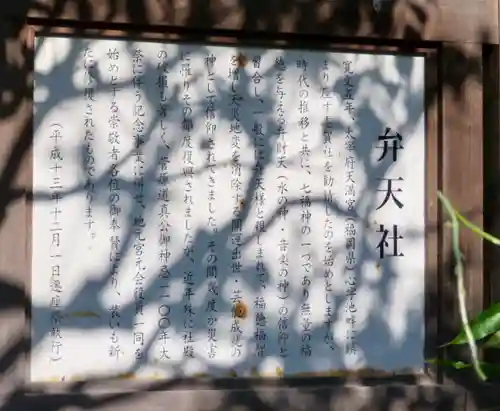 弁天社
宝永五年、太宰府天満宮(福岡県)心字池畔に鎮
まり在す志賀社を勧請したのを始めとしますが、
時代の推移と共に、七福神の一つであり無量の福
徳を与える弁財天(水の神・音楽の神)の信仰と
習合し、一般には弁天様と親しまれ、福徳福智
を増し天災地変を消除する開運出世・芸能成達の
神として信仰されてきました。その間幾度か災害
に罹りその都度復興されましたが、近年殊に社殿
の老損も著しく、菅原道真公御神忌一一〇〇年大
祭に伴う記念事業に併せ、地元宮元会役員一同を
始めとする崇敬者各位の御奉賛により、装いも新
たに修復されたものであります。
(平成十三年十二月一日遷座祭執行)